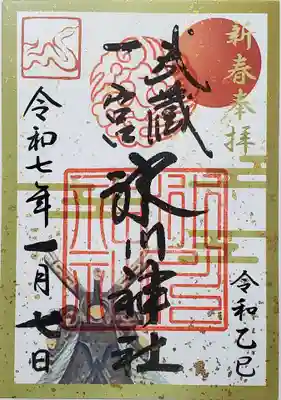 新春奉拝
武蔵
一宮
氷川神社
令和乙巳
令和七年一月七日